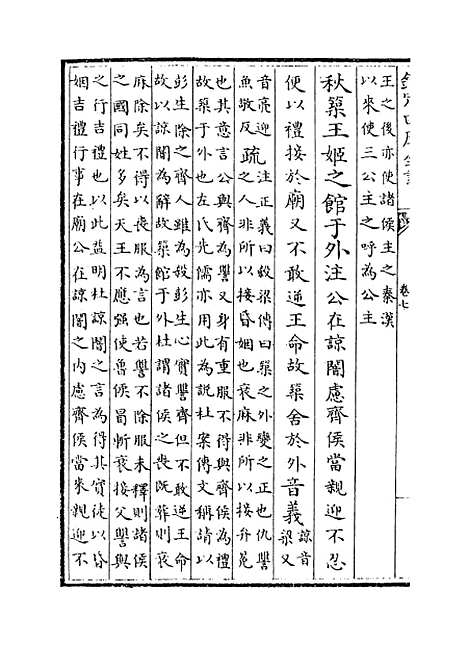 欽定四庫全書
卷七
王之後亦使諸侯主之秦漢
以來使三公主之呼為公主
秋築王姬之館于外注公在諒闇慮齊侯當親迎不忍
便以禮接於廟又不敢逆王命故築舍於外音義
諒音
梁又
音亮迎
魚敬反
疏
注正義曰穀梁傳曰築之外變之正也仇讐
之人非所以接昏姻也衰麻非所以接弁冕
也其意言公與齊為讐又身有重服不得與齊侯為禮
故築于外也左氏先儒亦用此為說杜案傳文稱請以
彭生除之齊人雖為殺彭生心實讐齊但不敢逆王命
故以諒闇為解故築館于外杜謂諸侯之喪既葬則衰
麻除矣不得以喪服為言也若讐不除服未釋則諸侯
之國同姓多矣天王不應強使魯侯冒斬衰接父讐與
之行吉禮也以此益明杜諒闇之言為得其實徒以昏
姻吉禮行事在廟公在諒闇之内慮齊侯當來親迎不